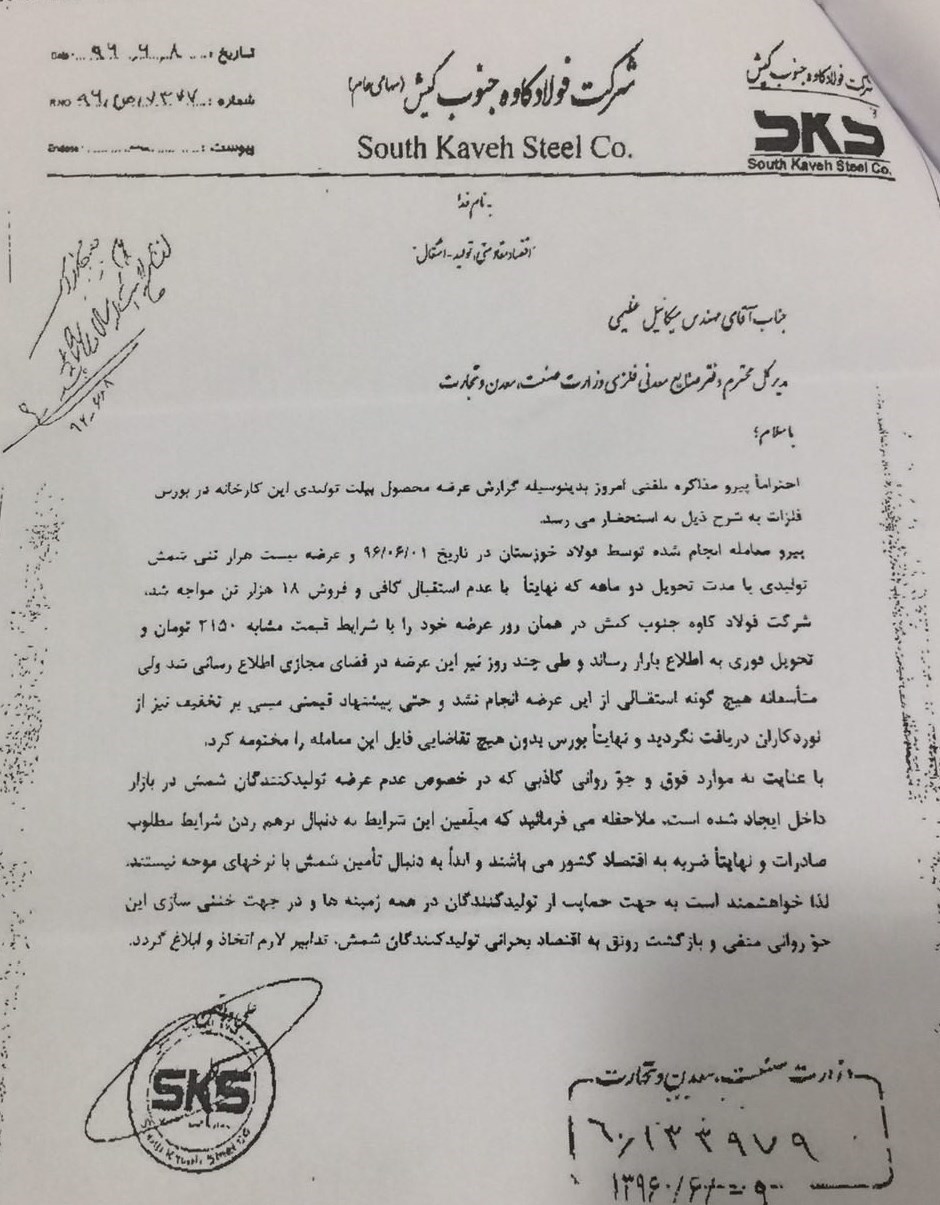 تاریخ : ۹۶.۶.۸ Date
شماره : ۹۶/ص/۷۳۷۷ R.NO
پیوست : Enclose
شرکت فولاد کاوه جنوب کیش (سهامی عام)
South Kaveh Steel Co.
شرکت فولاد کاوه جنوب کیش
SKS
South Kaveh Steel Co.
به نام خدا
"اقتصاد مقاومتی، تولید - اشتغال"
جناب آقای مهندس میکائیل عظیمی
مدیر کل محترم دفتر صنایع معدنی فلزی وزارت صنعت، معدن و تجارت
با سلام؛
احتراماً پیرو مذاکره تلفنی امروز بدینوسیله گزارش عرضه محصول بیلت تولیدی این کارخانه در بورس
فلزات به شرح ذیل به استحضار می رسد.
پیرو معامله انجام شده توسط فولاد خوزستان در تاریخ ۹۶/۰۶/۰۱ و عرضه بیست هزار تنی شمش
تولیدی با مدت تحویل دو ماهه که نهایتاً با عدم استقبال کافی و فروش ۱۸ هزار تن مواجه شد،
شرکت فولاد کاوه جنوب کیش در همان روز عرضه خود را با شرایط قیمت مشابه ۲۱۵۰ تومان و
تحویل فوری به اطلاع بازار رساند و طی چند روز نیز این عرضه در فضای مجازی اطلاع رسانی شد ولی
متأسفانه هیچ گونه استقبالی از این عرضه انجام نشد و حتی پیشنهاد قیمتی مبنی بر تخفیف نیز از
نوردکاران دریافت نگردید و نهایتاً بورس بدون هیچ تقاضایی فایل این معامله را مختومه کرد.
با عنایت به موارد فوق و جوّ روانی کاذبی که در خصوص عدم عرضه تولیدکنندگان شمش در بازار
داخل ایجاد شده است، ملاحظه می فرمائید که مبلّغین این شرایط به دنبال برهم زدن شرایط مطلوب
صادرات و نهایتاً ضربه به اقتصاد کشور می باشند و ابداً به دنبال تأمین شمش با نرخهای موجه نیستند.
لذا خواهشمند است به جهت حمایت از تولیدکنندگان در همه زمینه ها و در جهت خنثی سازی این
جوّ روانی منفی و بازگشت رونق به اقتصاد بحرانی تولیدکنندگان شمش، تدابیر لازم اتخاذ و ابلاغ گردد.
SKS
South Kaveh Steel Co
وزارت صنعت، معدن و تجارت
۶۰/۱۳۳۹۷۹